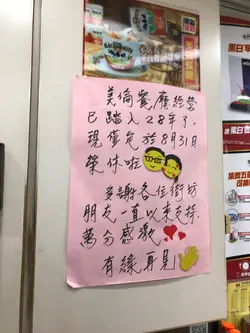 美倫餐廳經營
已踏入28年了.
現僅定於8月31日
榮休啦
多謝各位街坊
朋友一直以來支持.
萬分感激
有緣再見
黑白
黑白